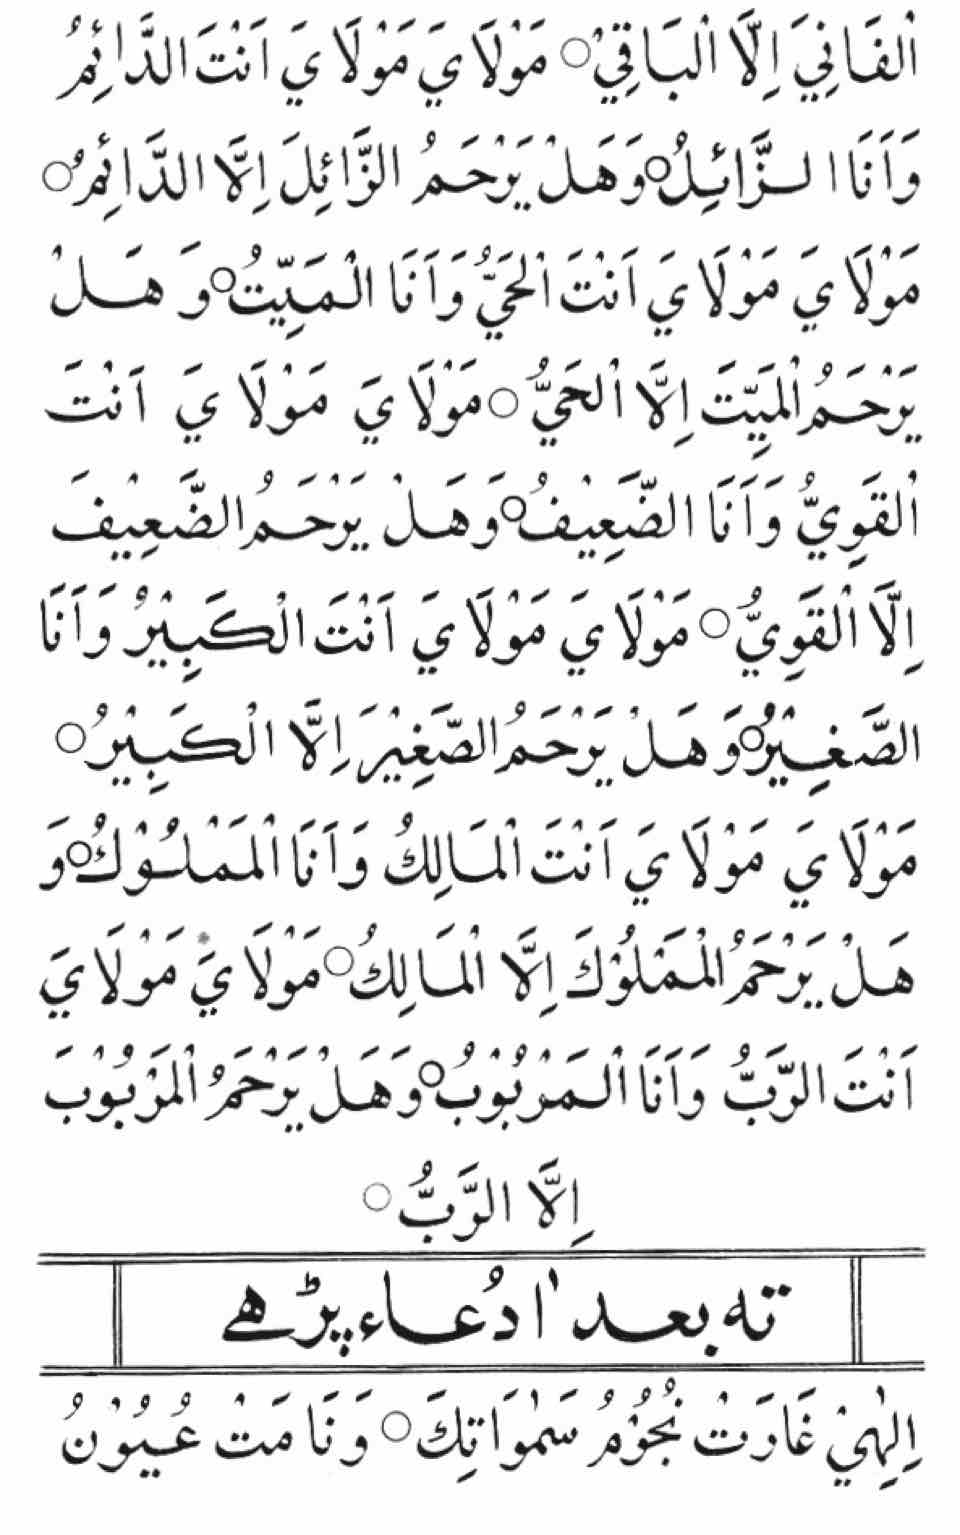 اْلفَانِيَ اِلَّا اْلبَاقِيْ○ مَوْلَايَ مَوْلَايَ اَنْتَ الدَّائِمُ
وَاَنَا الزَّائِلُ○وَهَلْ يَرْحَمُ الزَّائِلَ اِلَّا الدَّائِمُ○
مَوْلَايَ مَوْلَايَ اَنْتَ اْلحَيُّ وَاَنَا الْمَيِّتُ○وَ هَلْ
يَرْحَمُ اْلمَيِّتَ اِلَّا اْلحَيُّ○مَوْلَايَ مَوْلَايَ اَنْتَ
اْلقَوِيُّ وَاَنَا الضَّعِيْفُ○وَهَلْ يَرْحَمُ الضَّعِيْفَ
اِلَّا اْلقَوِيُّ○ مَوْلَايَ مَوْلَايَ اَنْتَ الْكَبِيْرُ وَاَنَا
الصَّغِيْرُ○وَهَلْ يَرْحَمُ الصَّغِيْرَ اِلَّا الْكَبِيْرُ○
مَوْلَايَ مَوْلَايَ اَنْتَ اْلمَالِكُ وَاَنَا الْمَمْلُوْكُ○وَ
هَلْ يَرْحَمُ الْمَمْلُوْكَ اِلَّا اْلمَالِكُ○مَوْلَايَ مَوْلَايَ
اَنْتَ الرَّبُّ وَاَنَا اْلمَرْبُوْبُ○وَهَلْ يَرْحَمُ اْلمَرْبُوْبَ
اِلَّا الرَّبُّ○
تہ بعد ا ٰدُعاء پڑھے
اِلٰهِيْ غَارَتْ نُجُوْمُ سَمٰوَاتِكَ○ وَنَامَتْ عُيُوْنُ